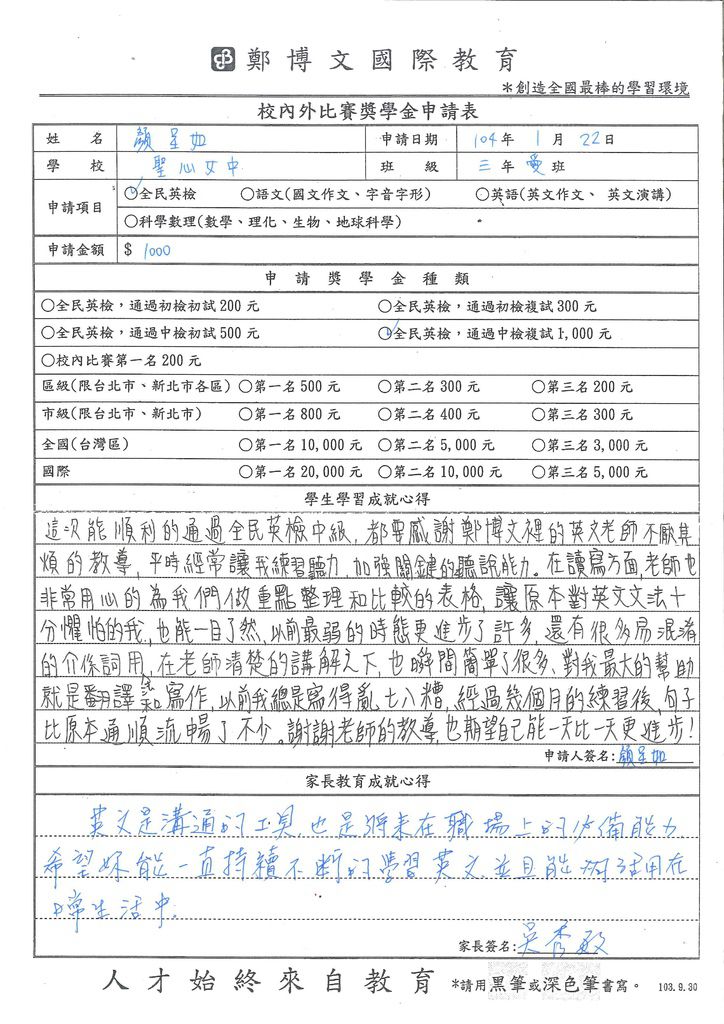 鄭博文國際教育
*創造全國最棒的學習環境
校內外比賽獎學金申請表
姓 名 顏呈如 申請日期 104年 1月 22日
學 校 聖心女中 班 級 三年 愛班
申請項目 ○全民英檢 ○語文(國文作文、字音字形) ○英語(英文作文、 英文演講)
○科學數理(數學、理化、生物、地球科學)
申請金額 $ 1000
申 請 獎 學 金 種 類
○全民英檢,通過初檢初試 200 元 ○全民英檢,通過初檢複試 300 元
○全民英檢,通過中檢初試 500 元 ○全民英檢,通過中檢複試 1,000 元
○校內比賽第一名 200 元
區級(限台北市、新北市各區) ○第一名 500 元 ○第二名 300 元 ○第三名 200 元
市級(限台北市、新北市) ○第一名 800 元 ○第二名 400 元 ○第三名 300 元
全國(台灣區) ○第一名 10,000 元 ○第二名 5,000 元 ○第三名 3,000 元
國際 ○第一名 20,000 元 ○第二名 10,000 元 ○第三名 5,000 元
學生學習成就心得
這次能順利的通過全民英檢中級,都要感謝鄭博文裡的英文老師不厭其
煩的教導,平時經常讓我練習聽力,加強關鍵的聽說能力。在讀寫方面,老師也
非常用心的為我們做重點整理和比較的表格,讓原本對英文文法十
分懼怕的我,也能一目了然,以前最弱的時態更進步了許多,還有很多易混淆
的介係詞用,在老師清楚的講解之下,也瞬間簡單了很多、對我最大的幫助
就是翻譯和寫作,以前我總是寫得亂七八糟,經過幾個月的練習後,句子
比原本通順流暢了不少。謝謝老師的教導,也期望自己能一天比一天更進步!
申請人簽名:顏呈如
家長教育成就心得
英文是溝通的工具,也是將來在職場上的必備能力
希望妳能一直持續不斷的學習英文,並且能活用在
日常生活中.
家長簽名:吳秀敏
人才始終來自教育 *請用黑筆或深色筆書寫。 103.9.30